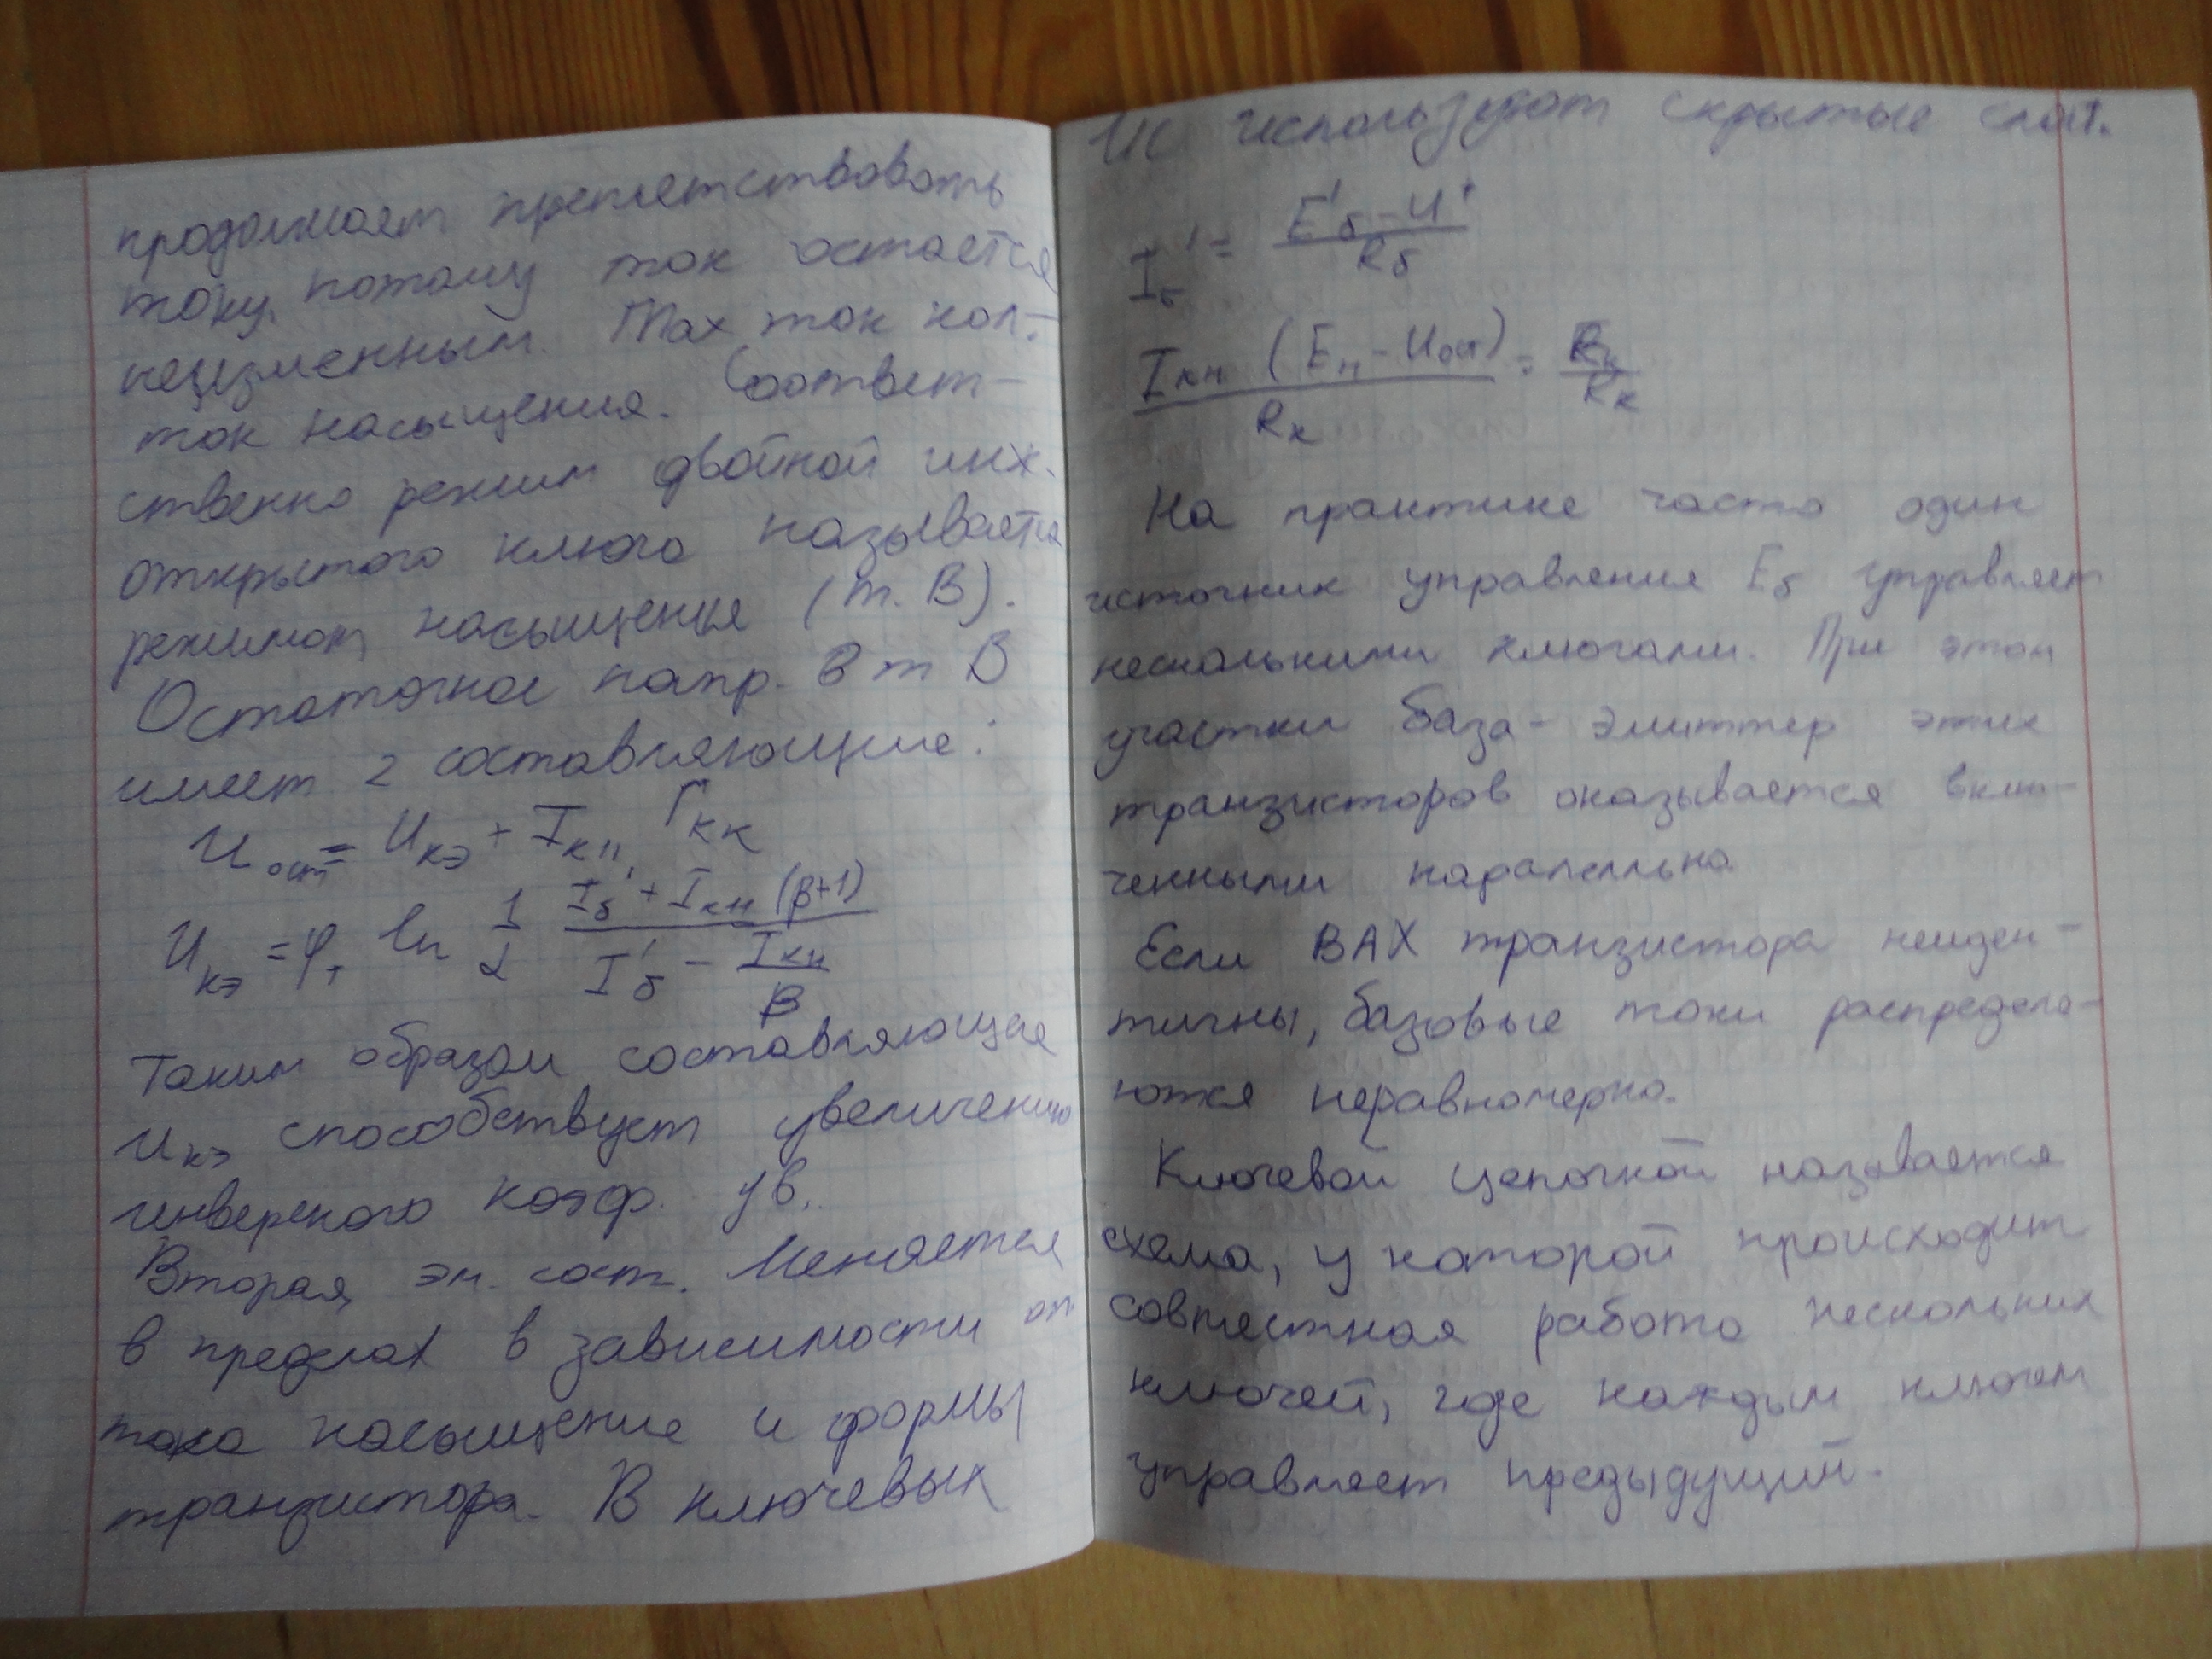 продолжает препятствовать
току, потому ток остается
неизменным. Max ток кол.-
ток насыщения. Соответ-
ственно режим двойной инж.
открытого ключа называется
режимом насыщения (т. В).
Остаточное напр. в т В
имеет 2 составляющие:
U ост = U кэ + I кн r кк
U кэ = φ т ln 1/α (I б' + I кн (β+1)) / (I' б - I кн / B)
Таким образом составляющая
U кэ способствует увеличению
инверсного коэф. ув.
Вторая эл. сост. Меняется
в пределах в зависимости от
тока насыщение и формы
транзистора. В ключевых
ИС используют скрытые слои.
I б' = (E' б - U') / R б
I кн (E н - U ост) / R к = E к / R к
На практике часто один
источник управления E б управляет
несколькими ключами. При этом
участки база - эмиттер этих
транзисторов оказывается вклю-
ченными параллельно
Если ВАХ транзистора неиден-
тичны, базовые токи распределя-
ются неравномерно.
Ключевой цепочкой называется
схема, у которой происходит
совместная работа нескольких
ключей, где каждым ключем
управляет предыдущий.